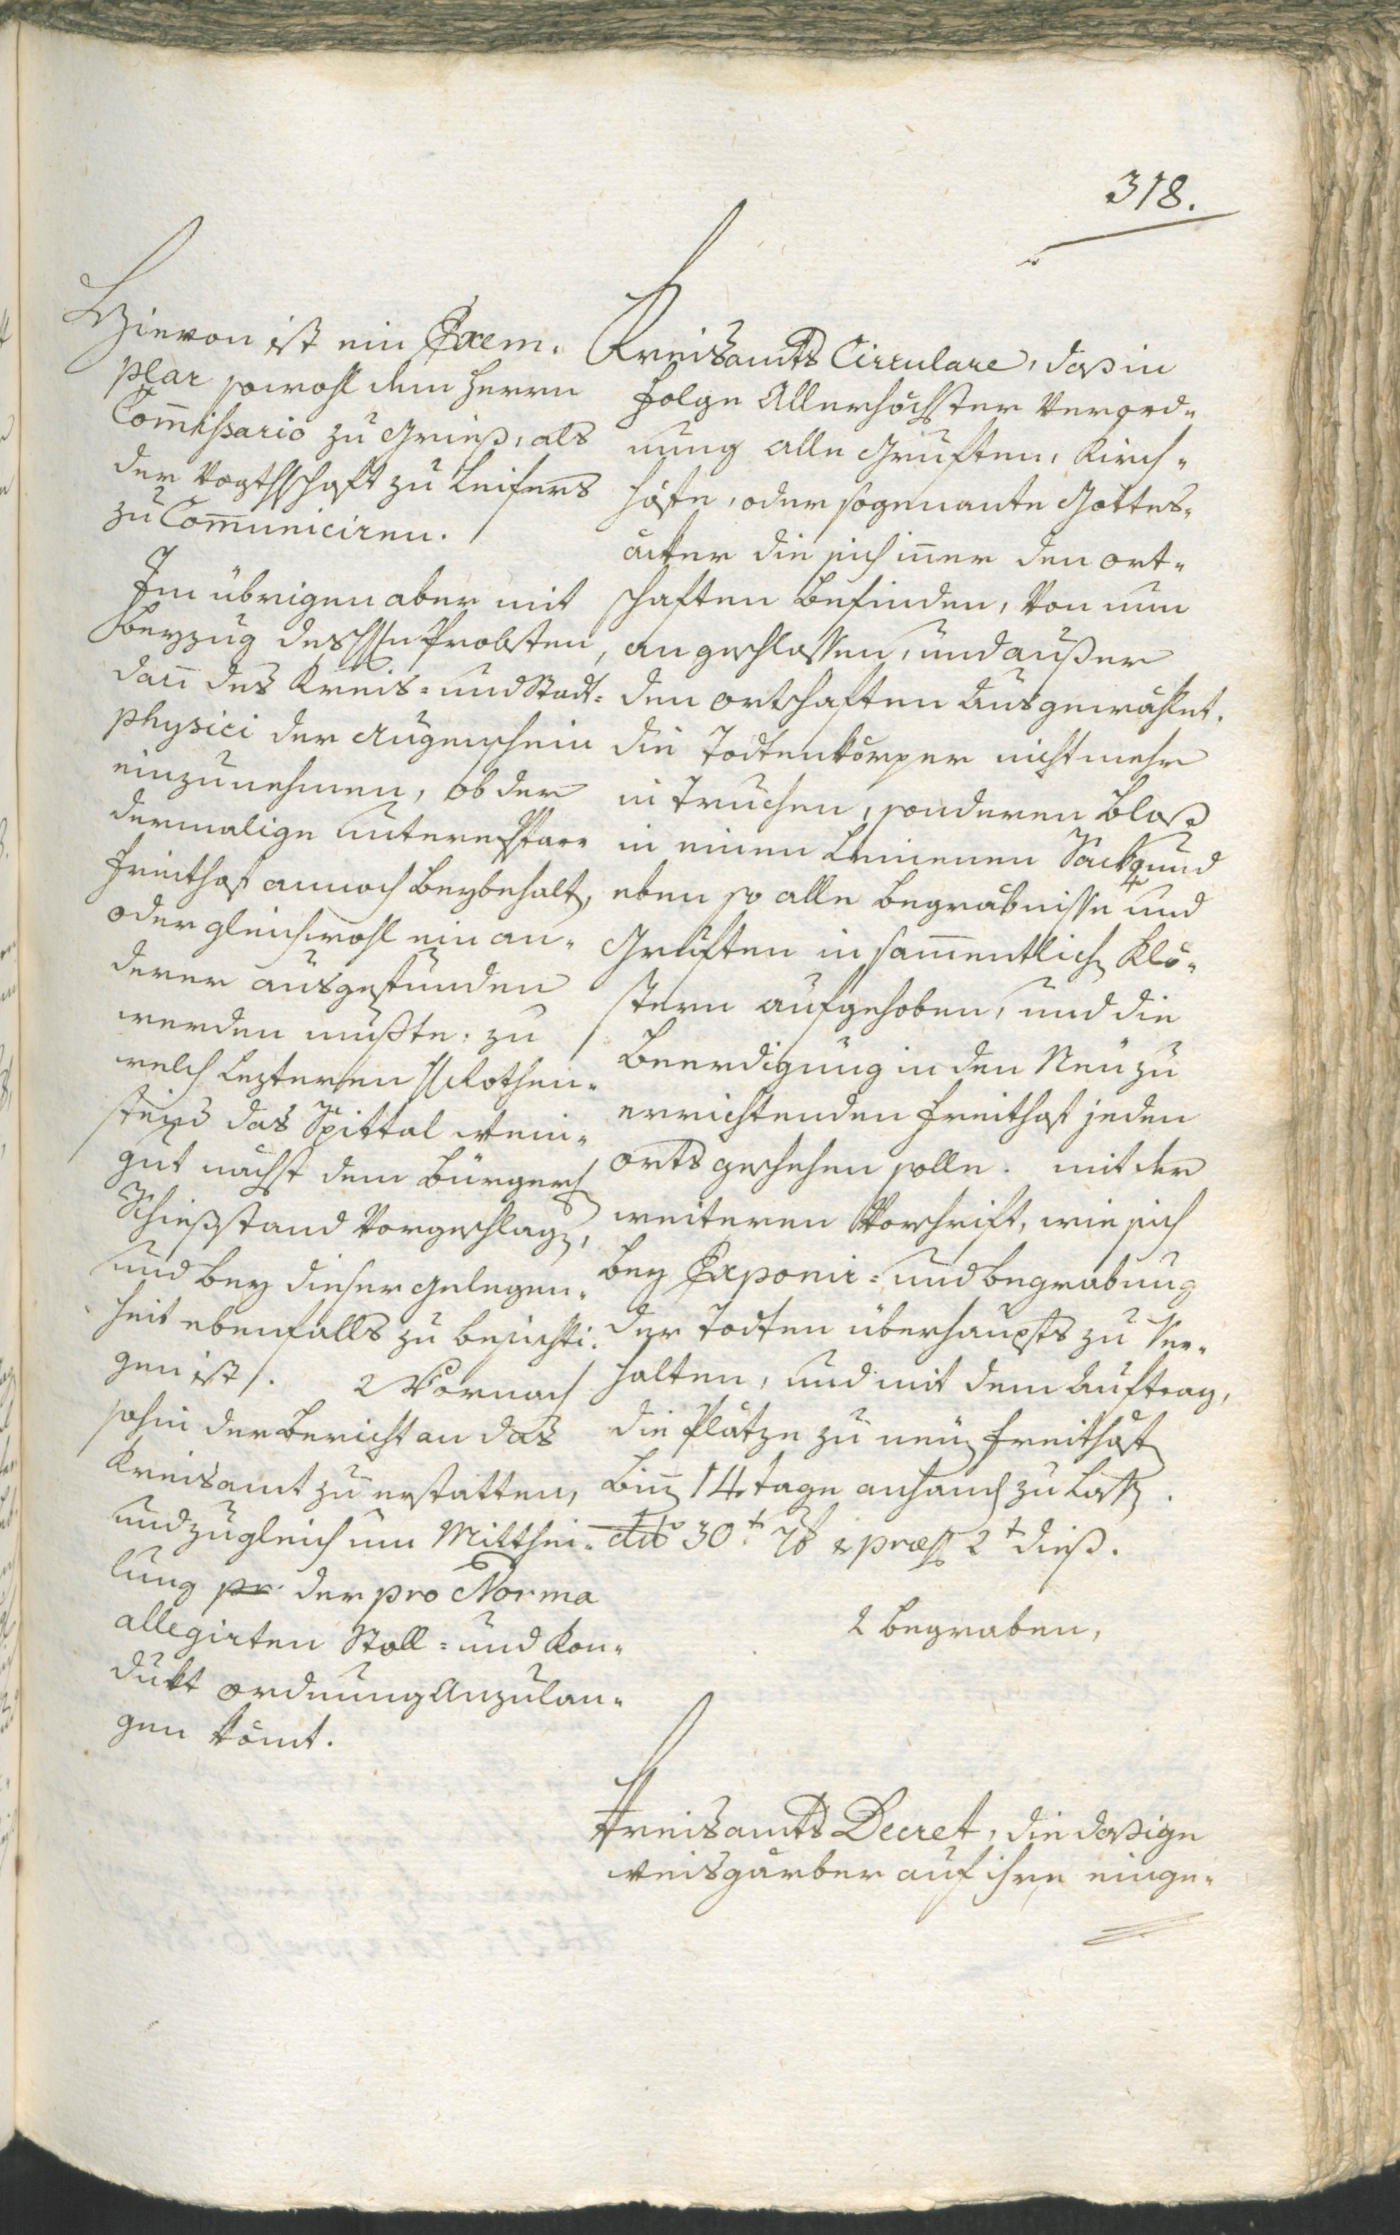 318.
Hievon ist ein Exem-
plar sowohl dem Herrn
Com̄issario zu Grieß, als
der Vogthschaft zu Leifers
zu Com̄uniciren.
Im übrigen aber mit
Beyzug des Hn Probsten,
dan̄ des Kreis- und Stadt-
physici der Augenschein
einzunehmen, ob der
dermalige unterepfarr
Freithof annoch beybehalt,
oder gleichwohl ein an-
derer ausgefunden
werden müßte: zu
welch Lezteren /Rothen-
steins das Spittal Wein-
gut nächst dem Bürgerl
Schießstand Vorgeschlag,
und bey dieser gelegen-
heit ebenfalls zu besichti-
gen ist/. Wornach
sohin der Bericht an das
Kreisamt zu erstatten,
und zugleich um Mitthei-
lung pr der pro Norma
allegirten Stoll- und Kon-
dukt ordnung Anzulan-
gen kömt.
Kreisamts Circulare, daß in
Folge Allerhöchster Verord-
nung alle Gruften, Kirch-
höfe, oder sogenante Gottes-
äcker die sich in̄er den ort-
schaften befinden, Von nun
an geschlossen, und außer
den ortschaften Ausgewählet.
die Todtenkörper nicht mehr
in Truchen, sonderen blos
in einen Leinenen Sack und
eben so alle begräbnisse und
Gruften in sam̄entlich Klö-
stern aufgehoben, und die
Beerdigung in den Neu zu
errichtenden Freithof jeden
orts geschehen solle. mit der
weiteren Vorschrift, wie sich
bey Exponir- und begrabung
der Todten überhaupts zu Ver-
halten, und mit dem Auftrag,
die Plätze zu neu Freithöf
bin̄ 14 tage anhand zu Lass.
dto 30t 7b & præs 2t dieß.
begraben,
Kreisamts Decret, die dasige
Weisgärber auf ihre einge-